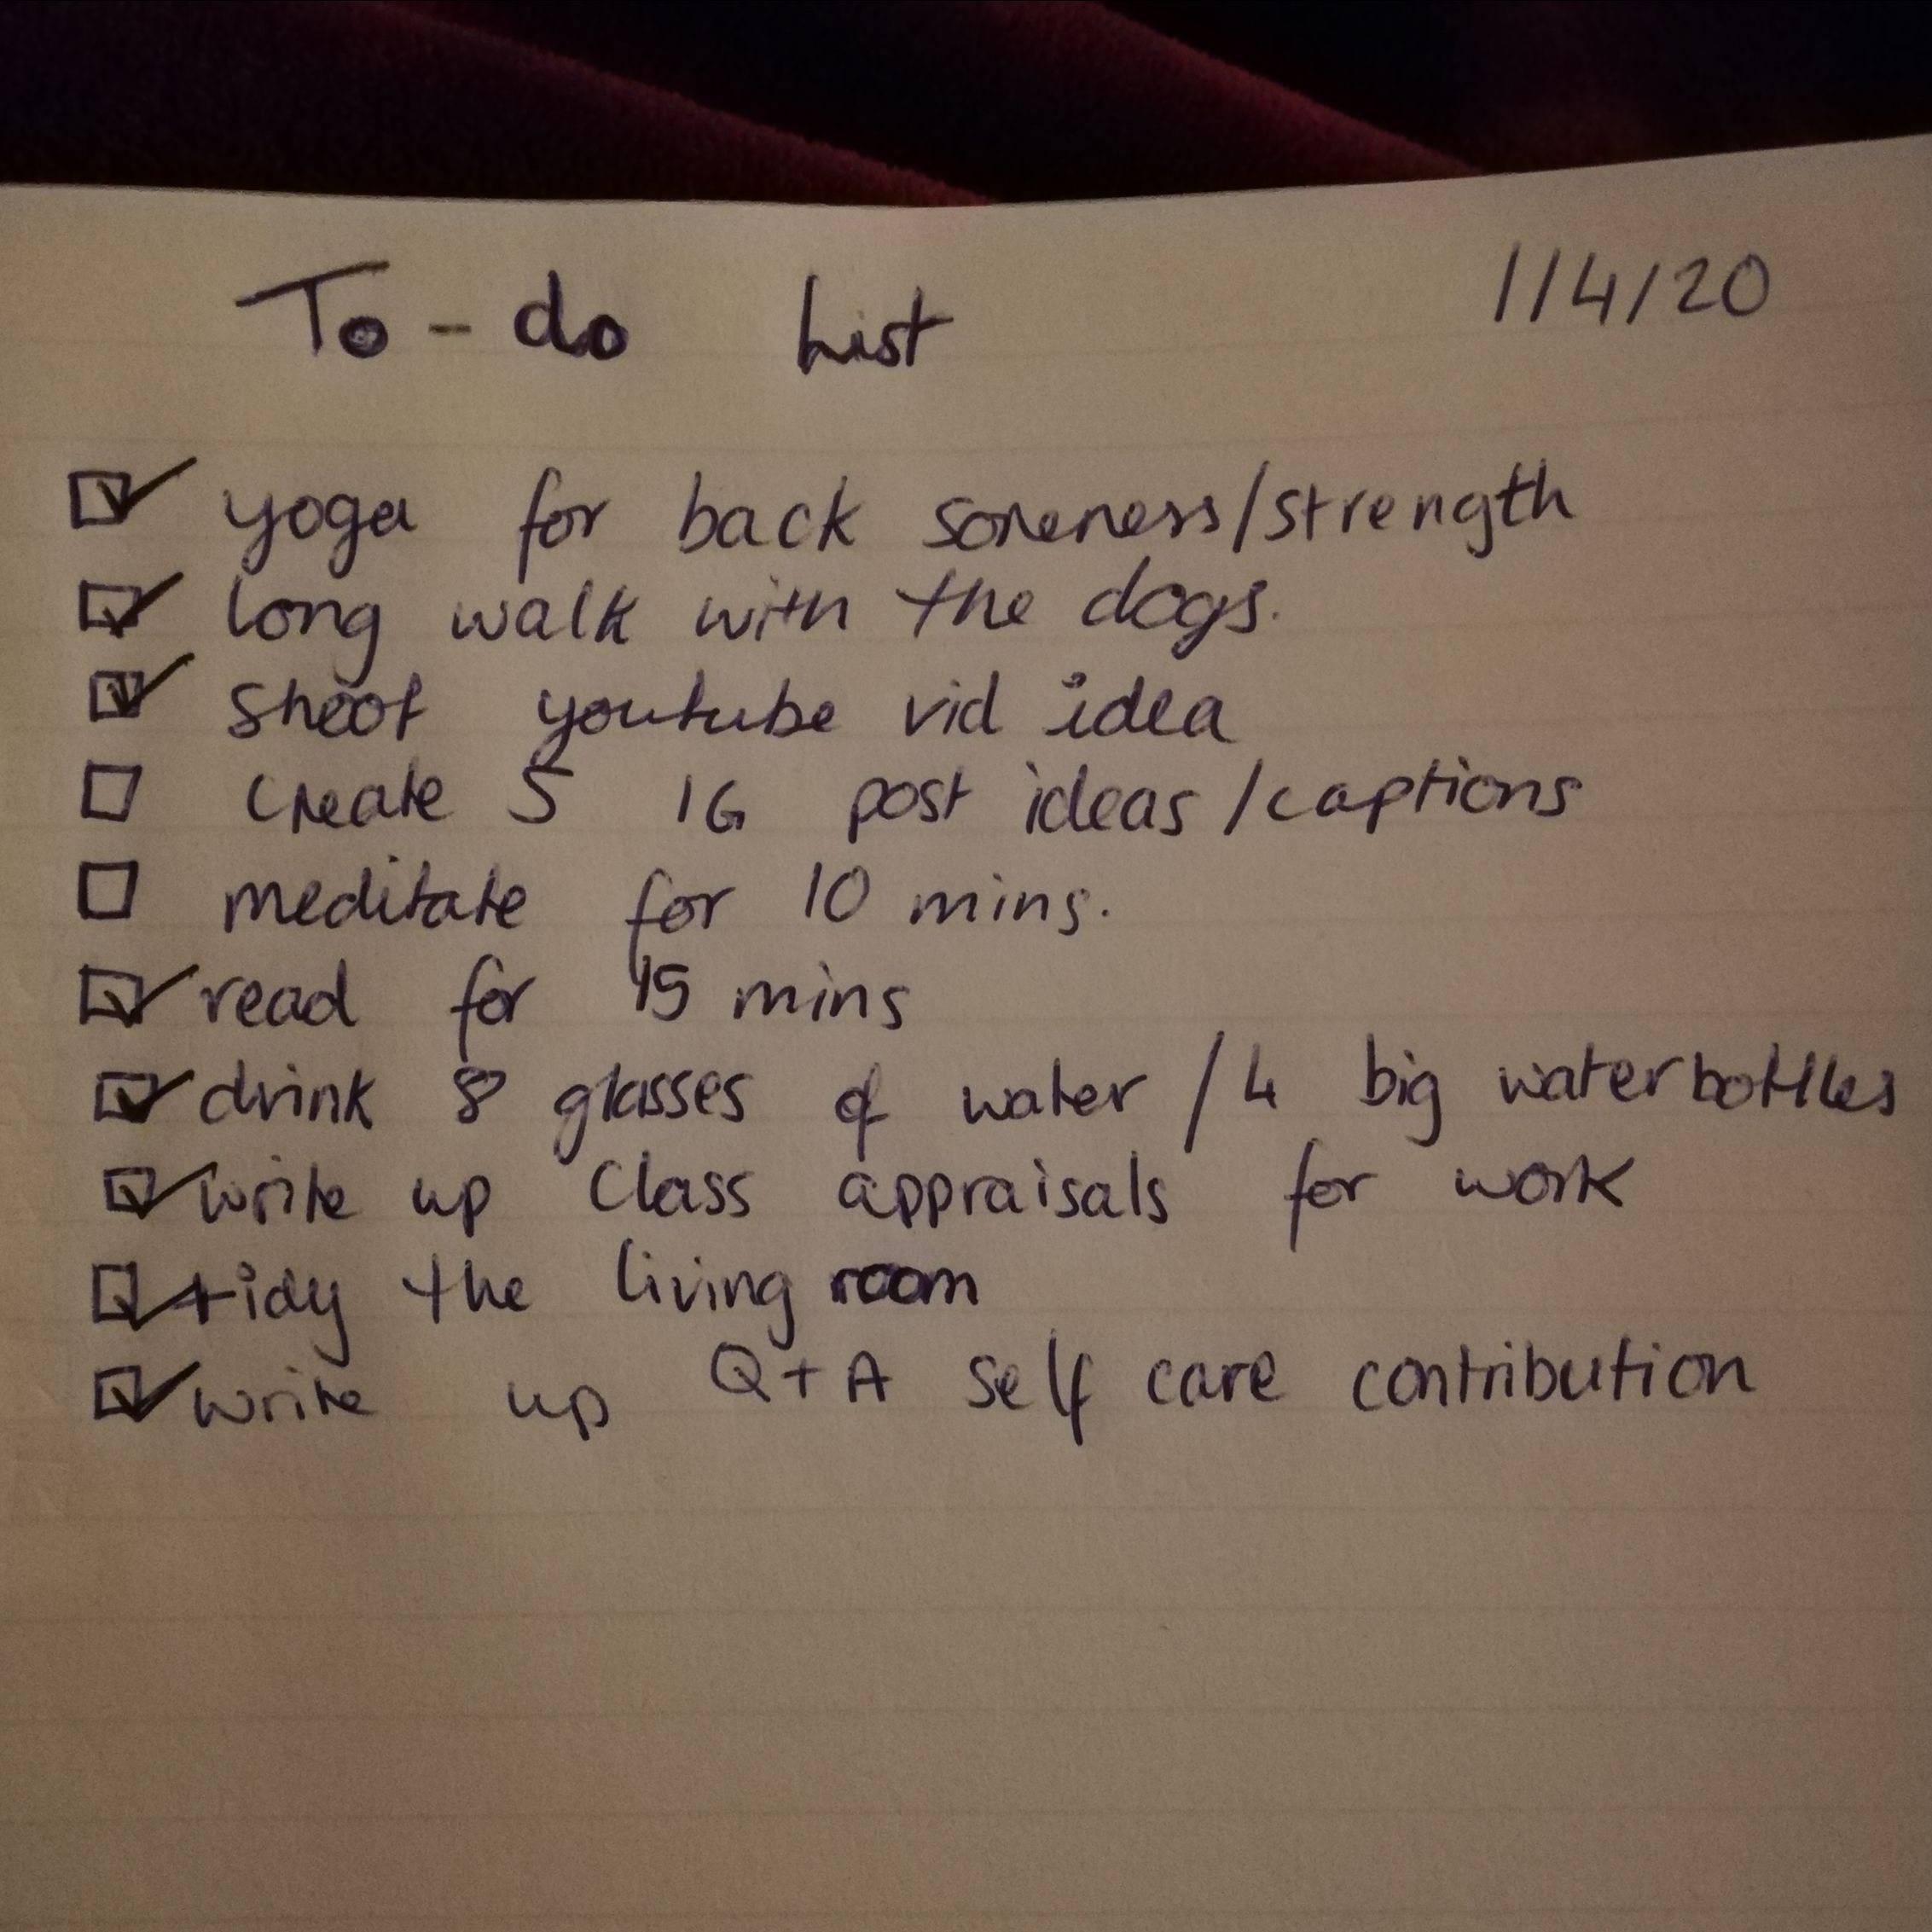 To-do List 1/4/20
☑ yoga for back soreness/strength
☑ long walk with the dogs.
☑ shoot youtube vid idea
☐ create 5 IG post ideas/captions
☐ meditate for 10 mins.
☑ read for 15 mins
☑ drink 8 glasses of water/4 big waterbottles
☑ write up class appraisals for work
☑ tidy the living room
☑ write up Q+A self care contribution